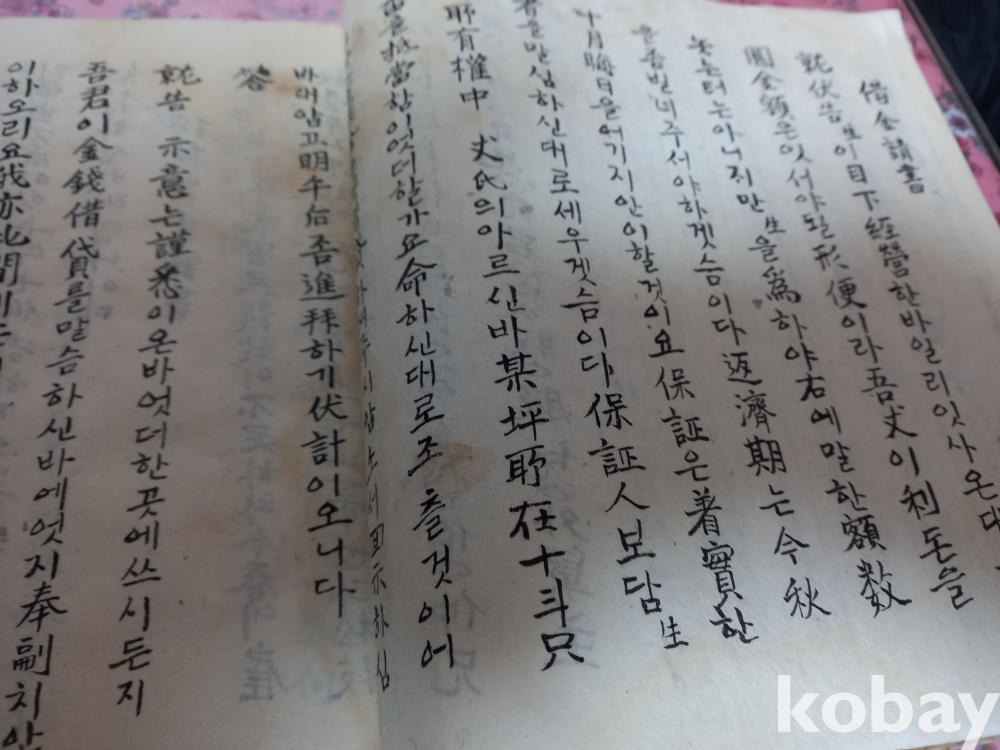 借金請書
就伏告生이目下経營한바일리잇사온대
圓金額은잇서야될形便이라吾丈이利돈을
놋는터는아니지만生을爲하야右에말한額数
을좀빌녀주서야하겟슴이다返濟期는今秋
十月晦日을어기지안이할것이요保証은着實한
者을말십하신대로세우겟슴이다保証人보담生
耶有權中 丈氏의아르신바某坪耶在十斗只
畓을抵當잡잇엇더한가요命하신대로조츨것이어
서回示하심
바래압고明午后좀進拜하기伏計이오니다
答
就告 示意는謹悉이온바엇더한곳에쓰시든지
吾君이金錢借貸를말슴하신바에엇지奉副치안
이하오리요我亦此間
kobay